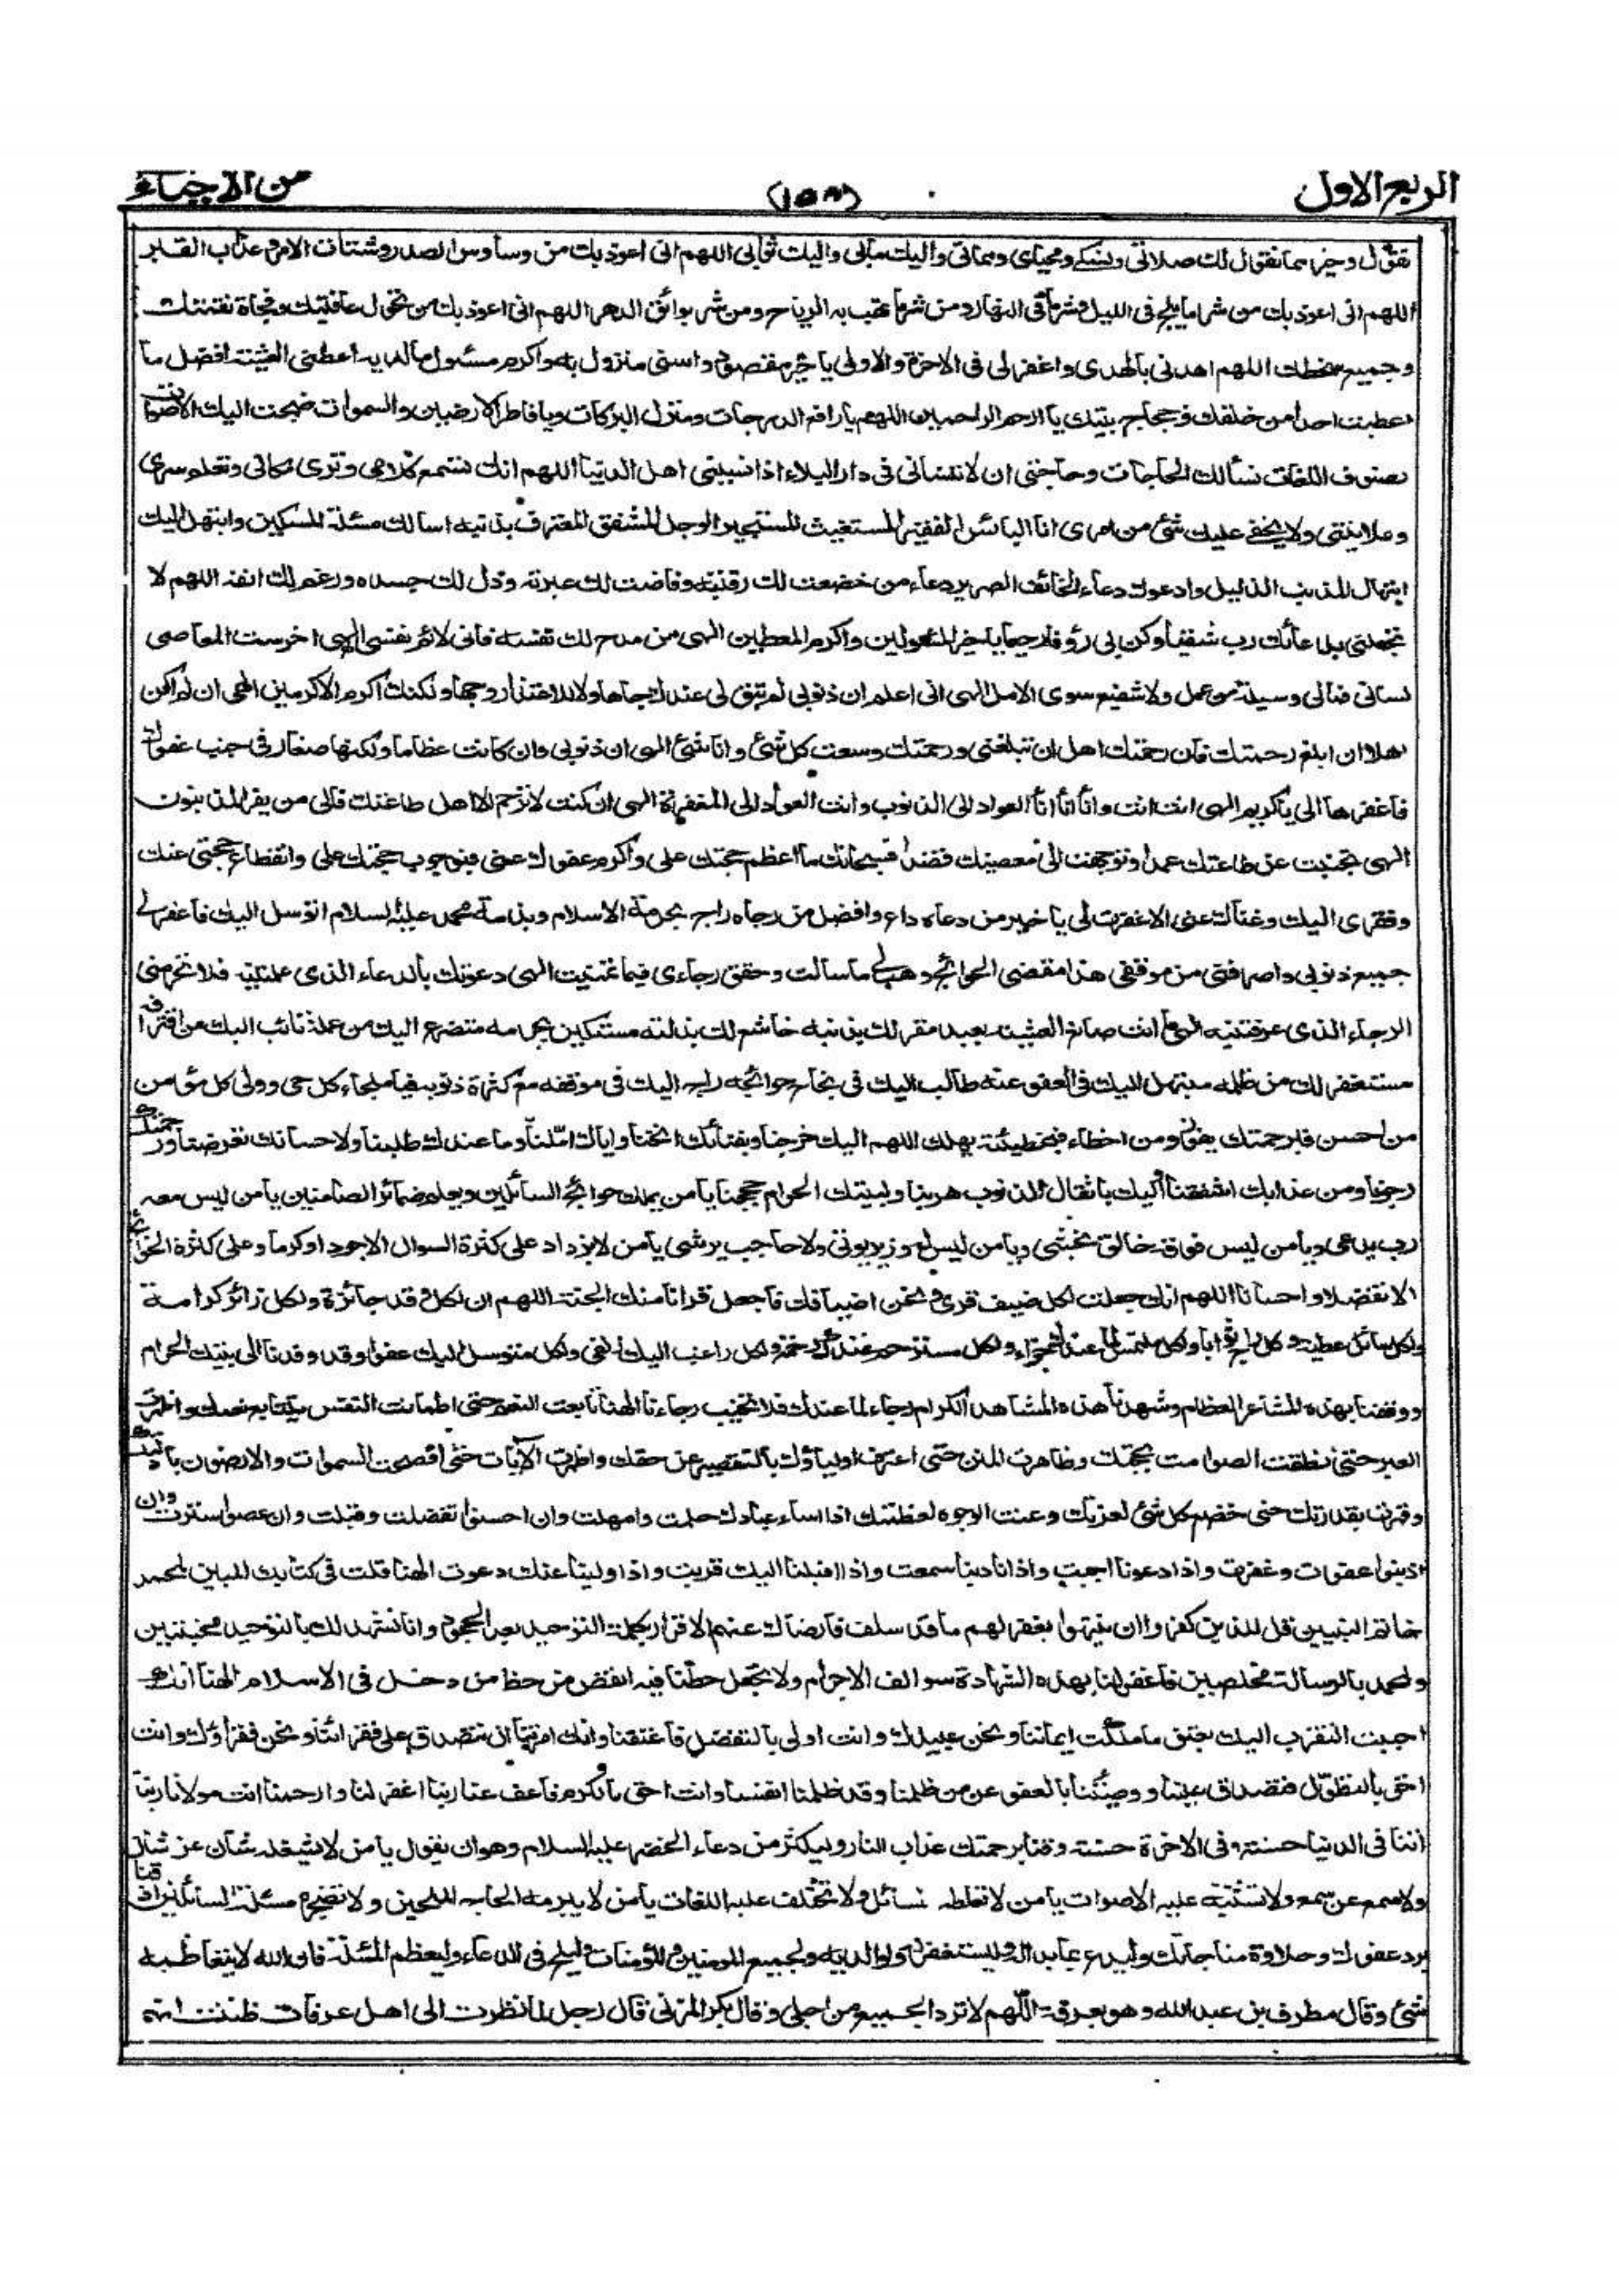 الربع الاول
من الاحياء
نقول وخيرا مما نقول لك صلاتى ونسكى ومحياى ومماتى واليك مآبى واليك ثوابى اللهم انى اعوذ بك من وساوس الصدر وشتات الامر وعذاب القبر
اللهم انى اعوذ بك من شر ما يلج فى الليل ومن شر ما يلج فى النهار ومن شر ما تهب به الرياح ومن شر بوائق الدهر اللهم انى اعوذ بك من تحول عافيتك وفجاة نقمتك
وجميع سخطك اللهم اهدنى بالهدى واغفر لى فى الاخرة والاولى يا خير مقصود واسنى منزول به واكرم مسئول ما لديه اعطنى العشية افضل ما
اعطيت احدا من خلقك وحجاج بيتك يا ارحم الراحمين اللهم يا رافع الدرجات ومنزل البركات ويا فاطر الارضين والسموات ضجت اليك الاصوات
بصنوف اللغات نسألك الحاجات وحاجتى ان لا تنسانى فى دار البلاء اذا نسينى اهل الدنيا اللهم انك تسمع كلامى وترى مكانى وتعلم سرى
وعلانيتى ولا يخفى عليك شئ من امرى انا البائس الفقير المستغيث المستجير الوجل المشفق المعترف بذنبه اسالك مسئلة المسكين وابتهل اليك
ابتهال المذنب الذليل وادعوك دعاء الخائف الضرير دعاء من خضعت لك رقبته وفاضت لك عبرته وذل لك جسده ورغم لك انفه اللهم لا
تجعلنى بدعائك رب شقيا وكن بى رؤفا رحيما يا خير المسؤلين واكرم المعطين الهى من مدح لك نفسه فانى لائم نفسى الهى اخرست المعاصى
لسانى فمالى وسيلة من عمل ولا شفيع سوى الامل الهى انى اعلم ان ذنوبى لم تبق لى عندك جاها ولا للاعتذار وجها ولكنك اكرم الاكرمين الهى ان لم اكن
اهلا ان ابلغ رحمتك فان رحمتك اهل ان تبلغنى ورحمتك وسعت كل شئ وانا شئ الهى ان ذنوبى وان كانت عظاما ولكنها صغار فى جنب عفوك
فاغفرها لى يا كريم الهى انت انت وانا انا انا العواد الى الذنوب وانت العواد الى المغفرة الهى ان كنت لا ترحم الا اهل طاعتك فالى من يفزع المذنبون
الهى تجنبت عن طاعتك عمدا وتوجهت الى معصيتك قصدا فسبحانك ما اعظم حجتك على واكرم عفوك عنى فبوجوب حجتك على وانقطاع حجتى عنك
وفقرى اليك وغناك عنى الا غفرت لى يا خير من دعاه داع وافضل من رجاه راج بحرمة الاسلام وبذمة محمد عليه السلام اتوسل اليك فاغفر لى
جميع ذنوبى واصرفنى من موقفى هذا مقضى الحوائج وهب لى ما سالت وحقق رجاءى فيما تمنيت الهى دعوتك بالدعاء الذى علمتنيه فلا تحرمنى
الرجاء الذى عرفتنيه الهى ما انت صانع العشية بعبد مقر لك بذنبه خاشع لك بذلته مستكين بجرمه متضرع اليك من عمله تائب اليك من اقترافه
مستغفر لك من ظلمه مبتهل اليك فى العفو عنه طالب اليك فى نجاح حوائجه راج اليك فى موقفه مع كثرة ذنوبه فيا ملجاء كل حى وولى كل مؤمن
من احسن فبرحمتك يفوز ومن اخطاء فبخطيئته يهلك اللهم اليك خرجنا وبفنائك انخنا واياك املنا وما عندك طلبنا ولاحسانك تعرضنا ورحمتك
رجونا ومن عذابك اشفقنا واليك باثقال الذنوب هربنا ولبيتك الحرام حججنا يا من يملك حوائج السائلين ويعلم ضمائر الصامتين يا من ليس معه
رب يدعى ويا من ليس فوقه خالق يخشى ويا من ليس له وزير يوتى ولا حاجب يرشى يا من لا يزداد على كثرة السوال الا جودا وكرما وعلى كثرة الحوائج
الا تفضلا واحسانا اللهم انك جعلت لكل ضيف قرى ونحن اضيافك فاجعل قرانا منك الجنة اللهم ان لكل وفد جائزة ولكل زائر كرامة
ولكل سائل عطية ولكل راج ثوابا ولكل ملتمس لما عندك جزاء ولكل مسترحم عندك رحمة ولكل راغب اليك زلفى ولكل متوسل اليك عفوا وقد وفدنا الى بيتك الحرام
ووقفنا بهذه المشاعر العظام وشهدنا هذه المشاهد الكرام رجاء لما عندك فلا تخيب رجاءنا الهنا تابعت النعم حتى اطمانت النفس بتتابع نعمك واظهرت
العبر حتى نطقت الصوامت بحجتك وظاهرت المنن حتى اعترف اولياؤك بالتقصير عن حقك واظهرت الآيات حتى افصحت السموات والارضون بادلتك
وقهرت بقدرتك حتى خضع كل شئ لعزتك وعنت الوجوه لعظمتك اذا اساء عبادك حلمت وامهلت وان احسنوا تفضلت وقبلت وان عصوا سترت وان
اذنبوا عفوت وغفرت واذا دعونا اجبت واذا نادينا سمعت واذا اقبلنا اليك قربت واذا ولينا عنك دعوت الهنا قلت فى كتابك المبين لمحمد
خاتم النبيين قل للذين كفروا ان ينتهوا يغفر لهم ما قد سلف فارضاك عنهم الاقرار بكلمة التوحيد بعد الجحود وانا نشهد لك بالتوحيد مخبتين
ولمحمد بالرسالة مخلصين فاغفر لنا بهذه الشهادة سوالف الاجرام ولا تجعل حظنا فيه انقص من حظ من دخل فى الاسلام الهنا انك
احببت التقرب اليك بعتق ما ملكت ايماننا ونحن عبيدك وانت اولى بالتفضل فاعتقنا وانك امرتنا ان نتصدق على فقرائنا ونحن فقراؤك وانت
احق بالتطول فتصدق علينا ووصيتنا بالعفو عن من ظلمنا وقد ظلمنا انفسنا وانت احق بالكرم فاعف عنا ربنا اغفر لنا وارحمنا انت مولانا ربنا
اتنا فى الدنيا حسنة وفى الاخرة حسنة وقنا برحمتك عذاب النار وليكثر من دعاء الخضر عليه السلام وهو ان يقول يا من لا يشغله شان عن شان
ولا سمع عن سمع ولا تشتبه عليه الاصوات يا من لا تغلطه المسائل ولا تختلف عليه اللغات يا من لا يبرمه الحاح الملحين ولا تضجره مسئلة السائلين اذقنا
برد عفوك وحلاوة مناجاتك وليدع بما بدا له وليستغفر له ولوالديه ولجميع المومنين والمؤمنات وليلح فى الدعاء وليعظم المسئلة فان الله لا يتعاظمه
شئ وقال مطرف بن عبدالله وهو بعرفة اللهم لا ترد الجميع من اجلى وقال بكر المزنى قال رجل لما نظرت الى اهل عرفات ظننت انه